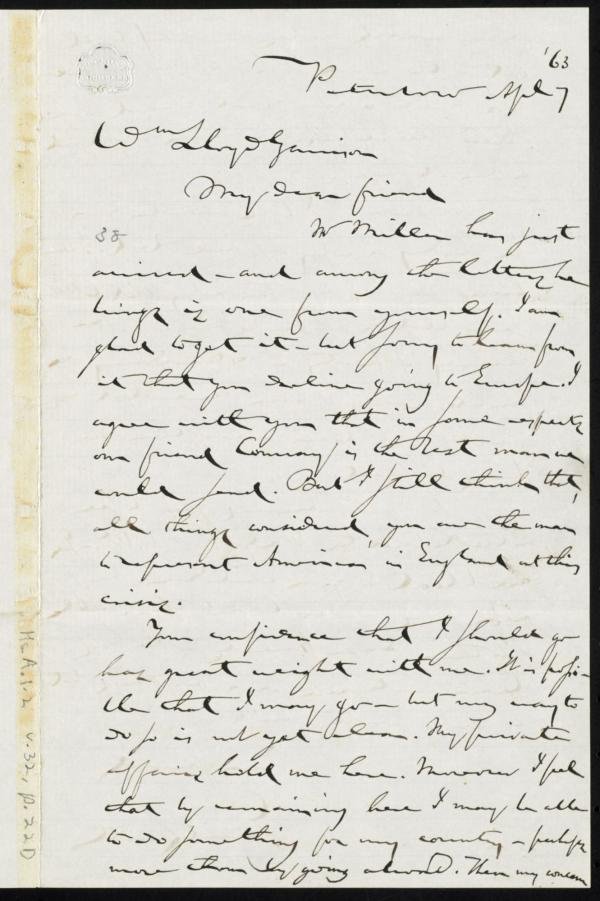 '63
Peterboro Apl 7
Wm Lloyd Garrison
My dear friend
38
Mr Miller has just
arrived – and among the letters he
brings is one from yourself. I am
glad to get it – but sorry to learn from
it that you decline going to Europe. I
agree with you that in some respects
our friend Conway is the best man we
could send. But I still think that,
all things considered, you are the man
to represent America in England at this
crisis.
Your confidence that I should go
has great weight with me. It is possi-
ble that I may go – but my way to
do so is not yet clear. My private
affairs hold me here. Moreover I feel
that by remaining here I may be able
to do something for my country – perhaps
more than by going abroad. Then my
Ms. A.1.2 v.32, p.22D